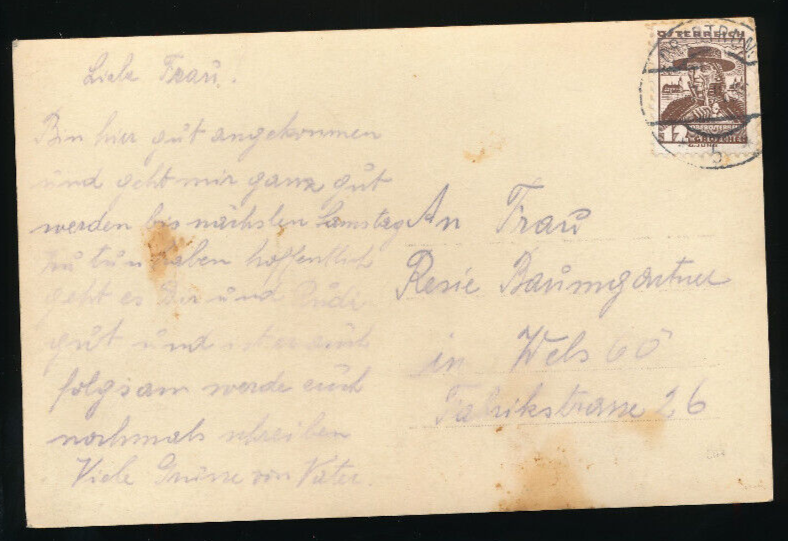 Liebe Frau.
Bin hier gut angekommen
und geht mir ganz gut
werden bis nächsten Samstag
zu tun haben hoffentlich
geht es Dir und Rudi
gut und ist er auch
folgsam werde euch
nochmals schreiben
Viele Grüsse von Vater.
ÖSTERREICH
12 GROSCHEN
b
An Frau
Resie Baumgartner
in Wels OÖ
Fabrikstrasse 26